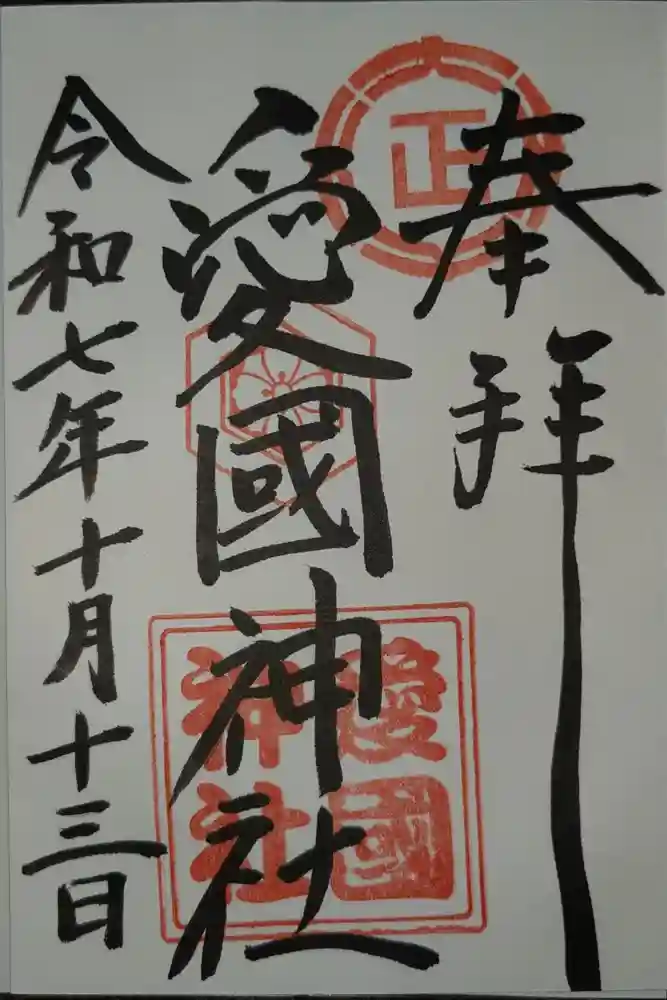 奉拝
愛國神社
令和七年十月十三日
正
愛國
神社